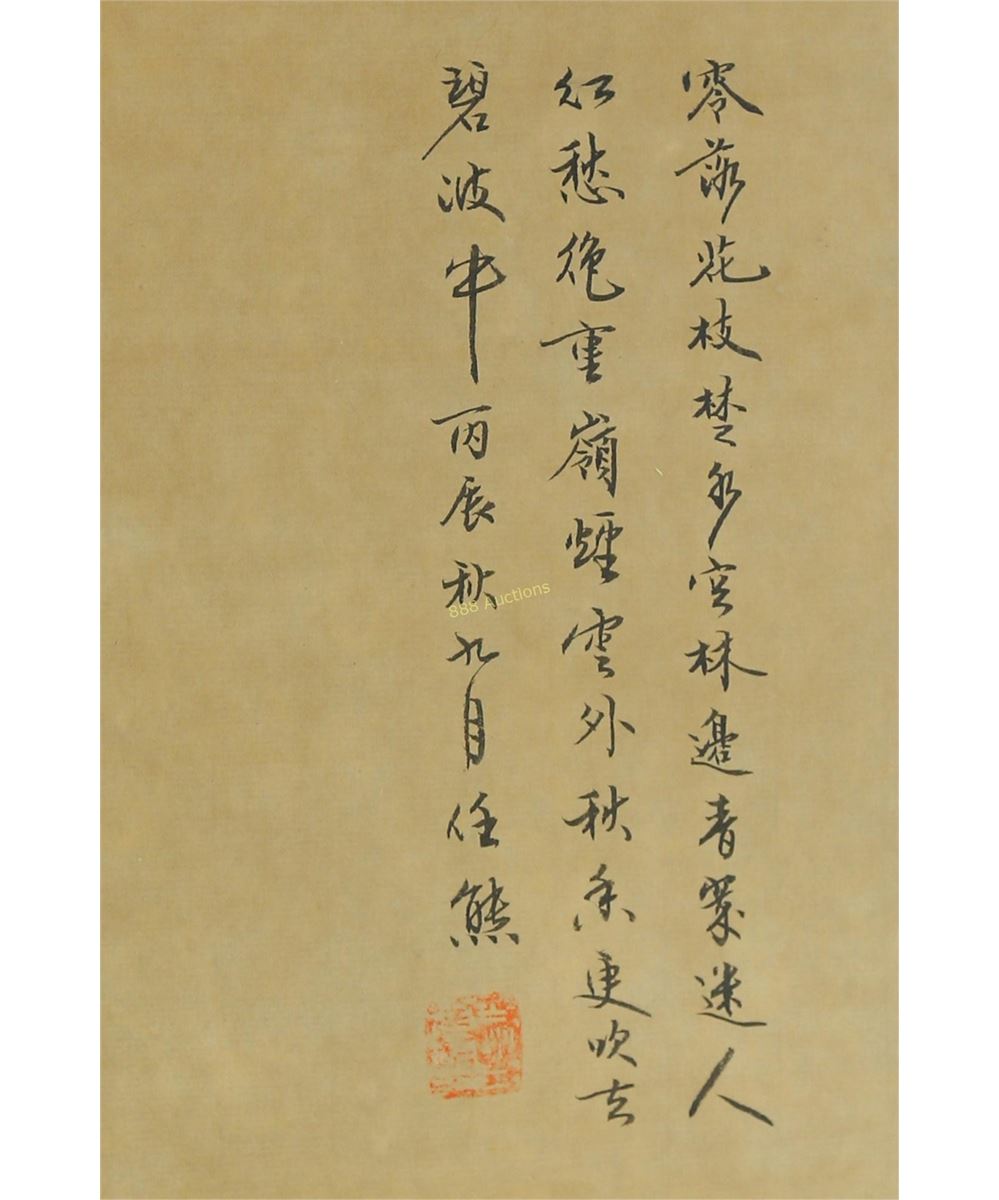 零落花枝楚水空林邊青迷人
紅愁絕重嶺煙雲外秋香更吹去
碧波中丙辰秋九月任熊
888 Auctions